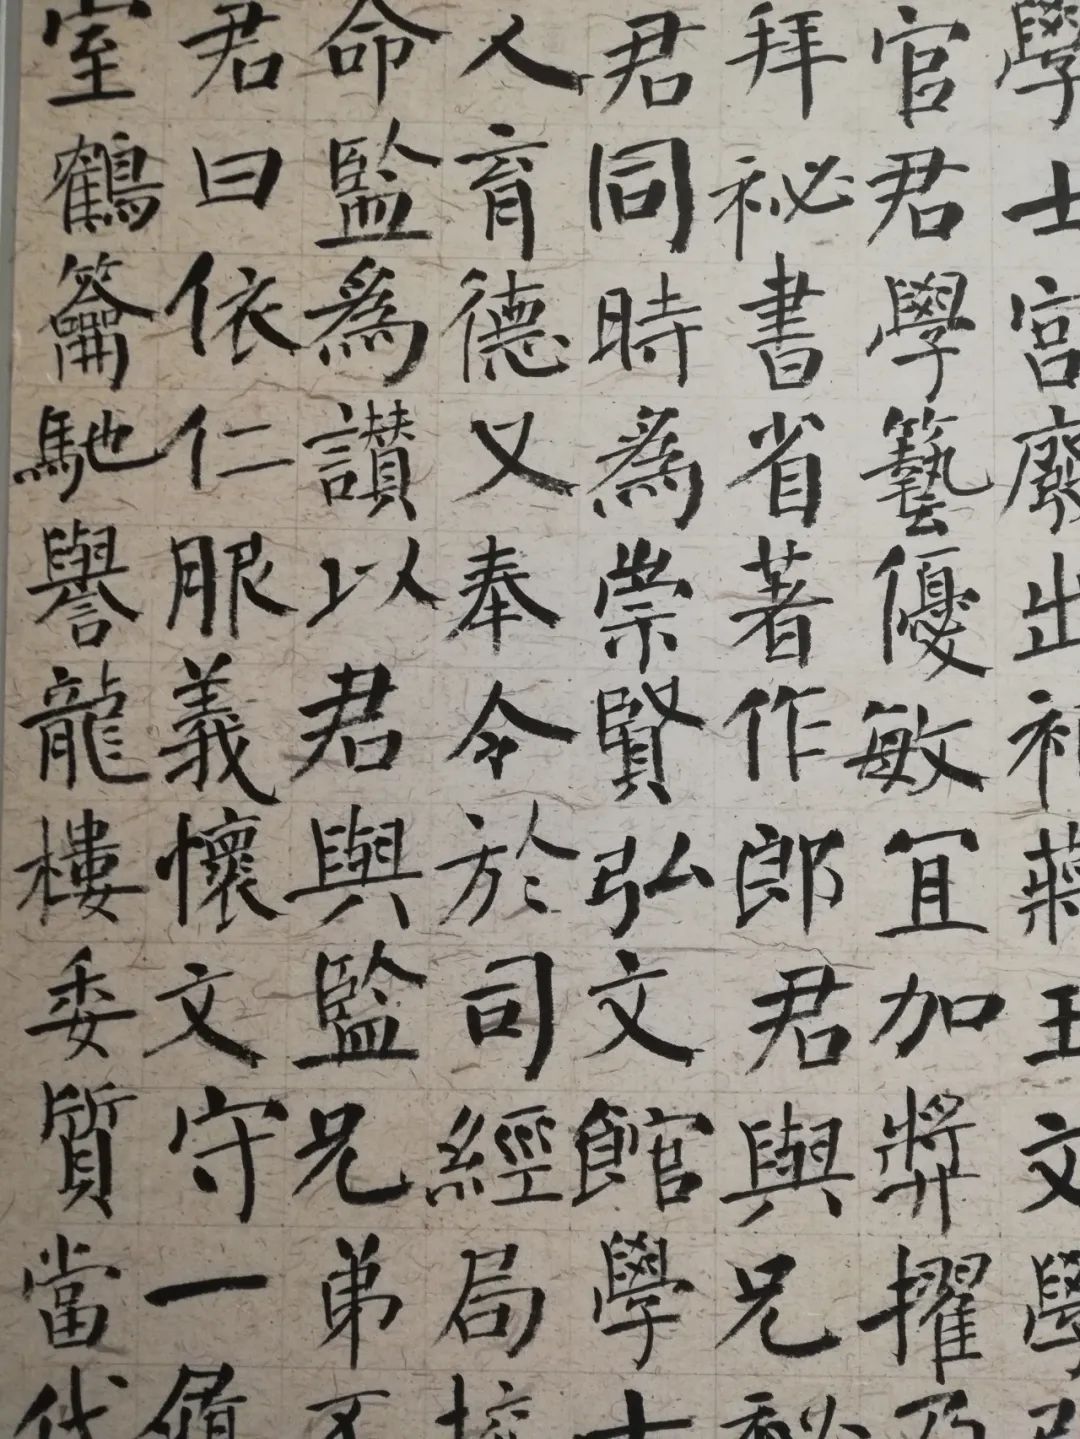 學士宮廢出王文學
官君學藝優敏宜加弊擢乃
拜祕書省著作郎君與兄秘
君同時為崇賢弘文館學士
人育德又奉令於司經局校
命監為讚以君與監兄弟不
君曰依仁服義懷文守一履
室鶴籥馳譽龍樓委質當代